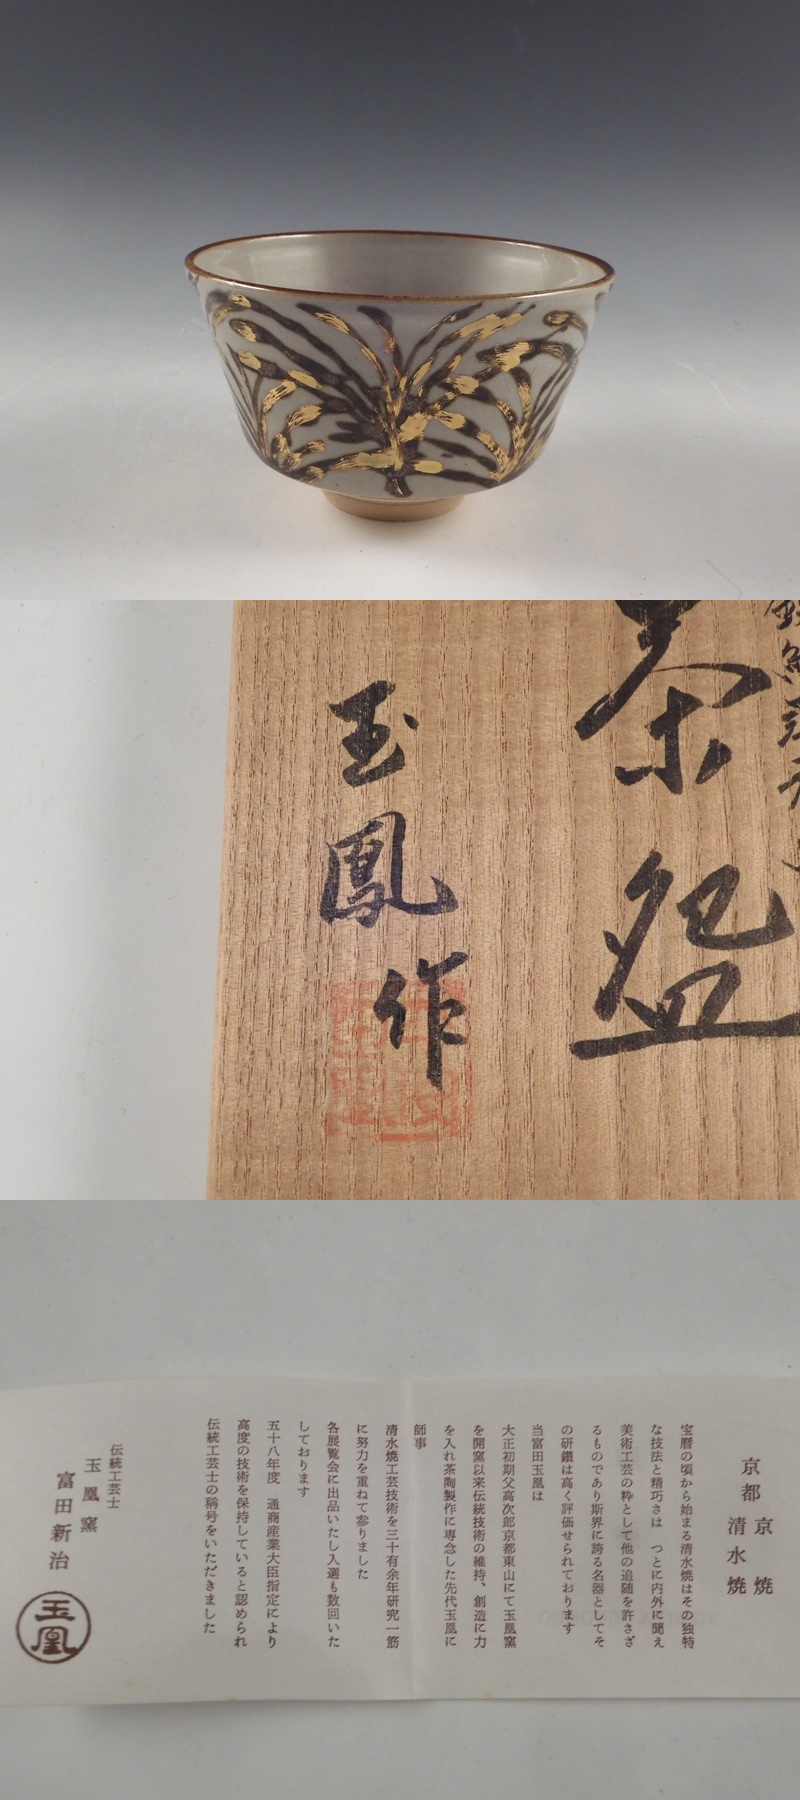 茶盌
玉鳳
作
京都 京焼
清水焼
宝暦の頃から始まる清水焼はその独特
な技法と精巧さは つとに内外に聞え
美術工芸の粋として他の追随を許さざ
るものであり斯界に誇る名器としてそ
の研鑽は高く評価せられております
当富田玉凰は
大正初期父高次郎京都東山にて玉凰窯
を開窯以来伝統技術の維持、創造に力
を入れ茶陶製作に専念した先代玉凰に
師事
清水焼工芸技術を三十有余年研究一筋
に努力を重ねて参りました
各展覧会に出品いたし入選も数回いた
しております
五十八年度 通商産業大臣指定により
高度の技術を保持していると認められ
伝統工芸士の称号をいただきました
伝統工芸士
玉凰窯
富田新治
玉凰